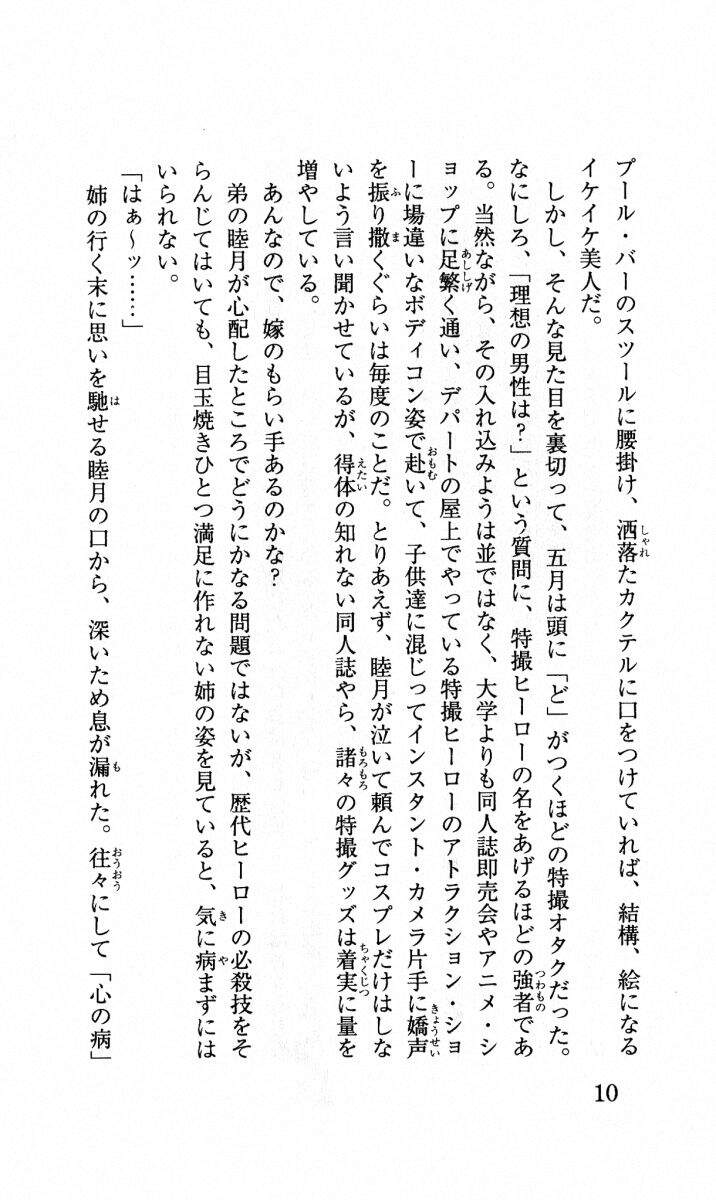 プール・バーのスツールに腰掛け、洒落たカクテルに口をつけていれば、結構、絵になる
イケイケ美人だ。
しかし、そんな見た目を裏切って、五月は頭に「ど」がつくほどの特撮オタクだった。
なにしろ、「理想の男性は？」という質問に、特撮ヒーローの名をあげるほどの強者であ
る。当然ながら、その入れ込みようは並ではなく、大学よりも同人誌即売会やアニメ・シ
ョップに足繁く通い、デパートの屋上でやっている特撮ヒーローのアトラクション・ショ
ーに場違いなボディコン姿で赴いて、子供達に混じってインスタント・カメラ片手に嬌声
を振り撒くぐらいは毎度のことだ。とりあえず、睦月が泣いて頼んでコスプレだけはしな
いよう言い聞かせているが、得体の知れない同人誌やら、諸々の特撮グッズは着実に量を
増やしている。
あんなので、嫁のもらい手あるのかな？
弟の睦月が心配したところでどうにかなる問題ではないが、歴代ヒーローの必殺技をそ
らんじてはいても、目玉焼きひとつ満足に作れない姉の姿を見ていると、気に病まずには
いられない。
「はぁ〜ッ……」
姉の行く末に思いを馳せる睦月の口から、深いため息が漏れた。往々にして「心の病」
10